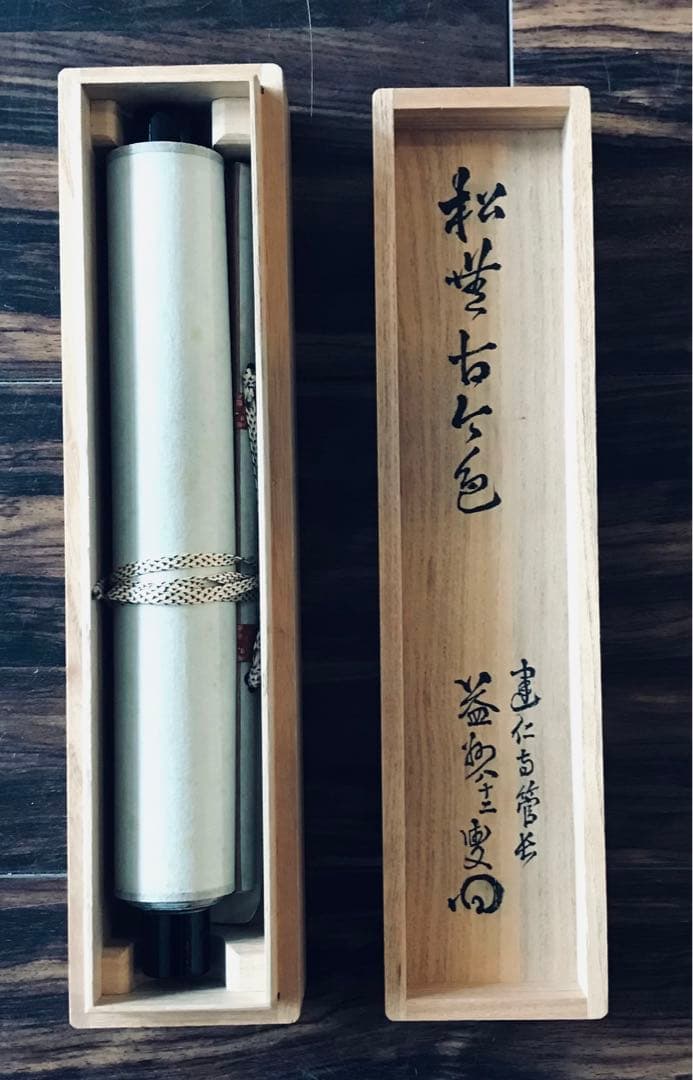 松無古今色
建仁寺管長
益州八十二叟